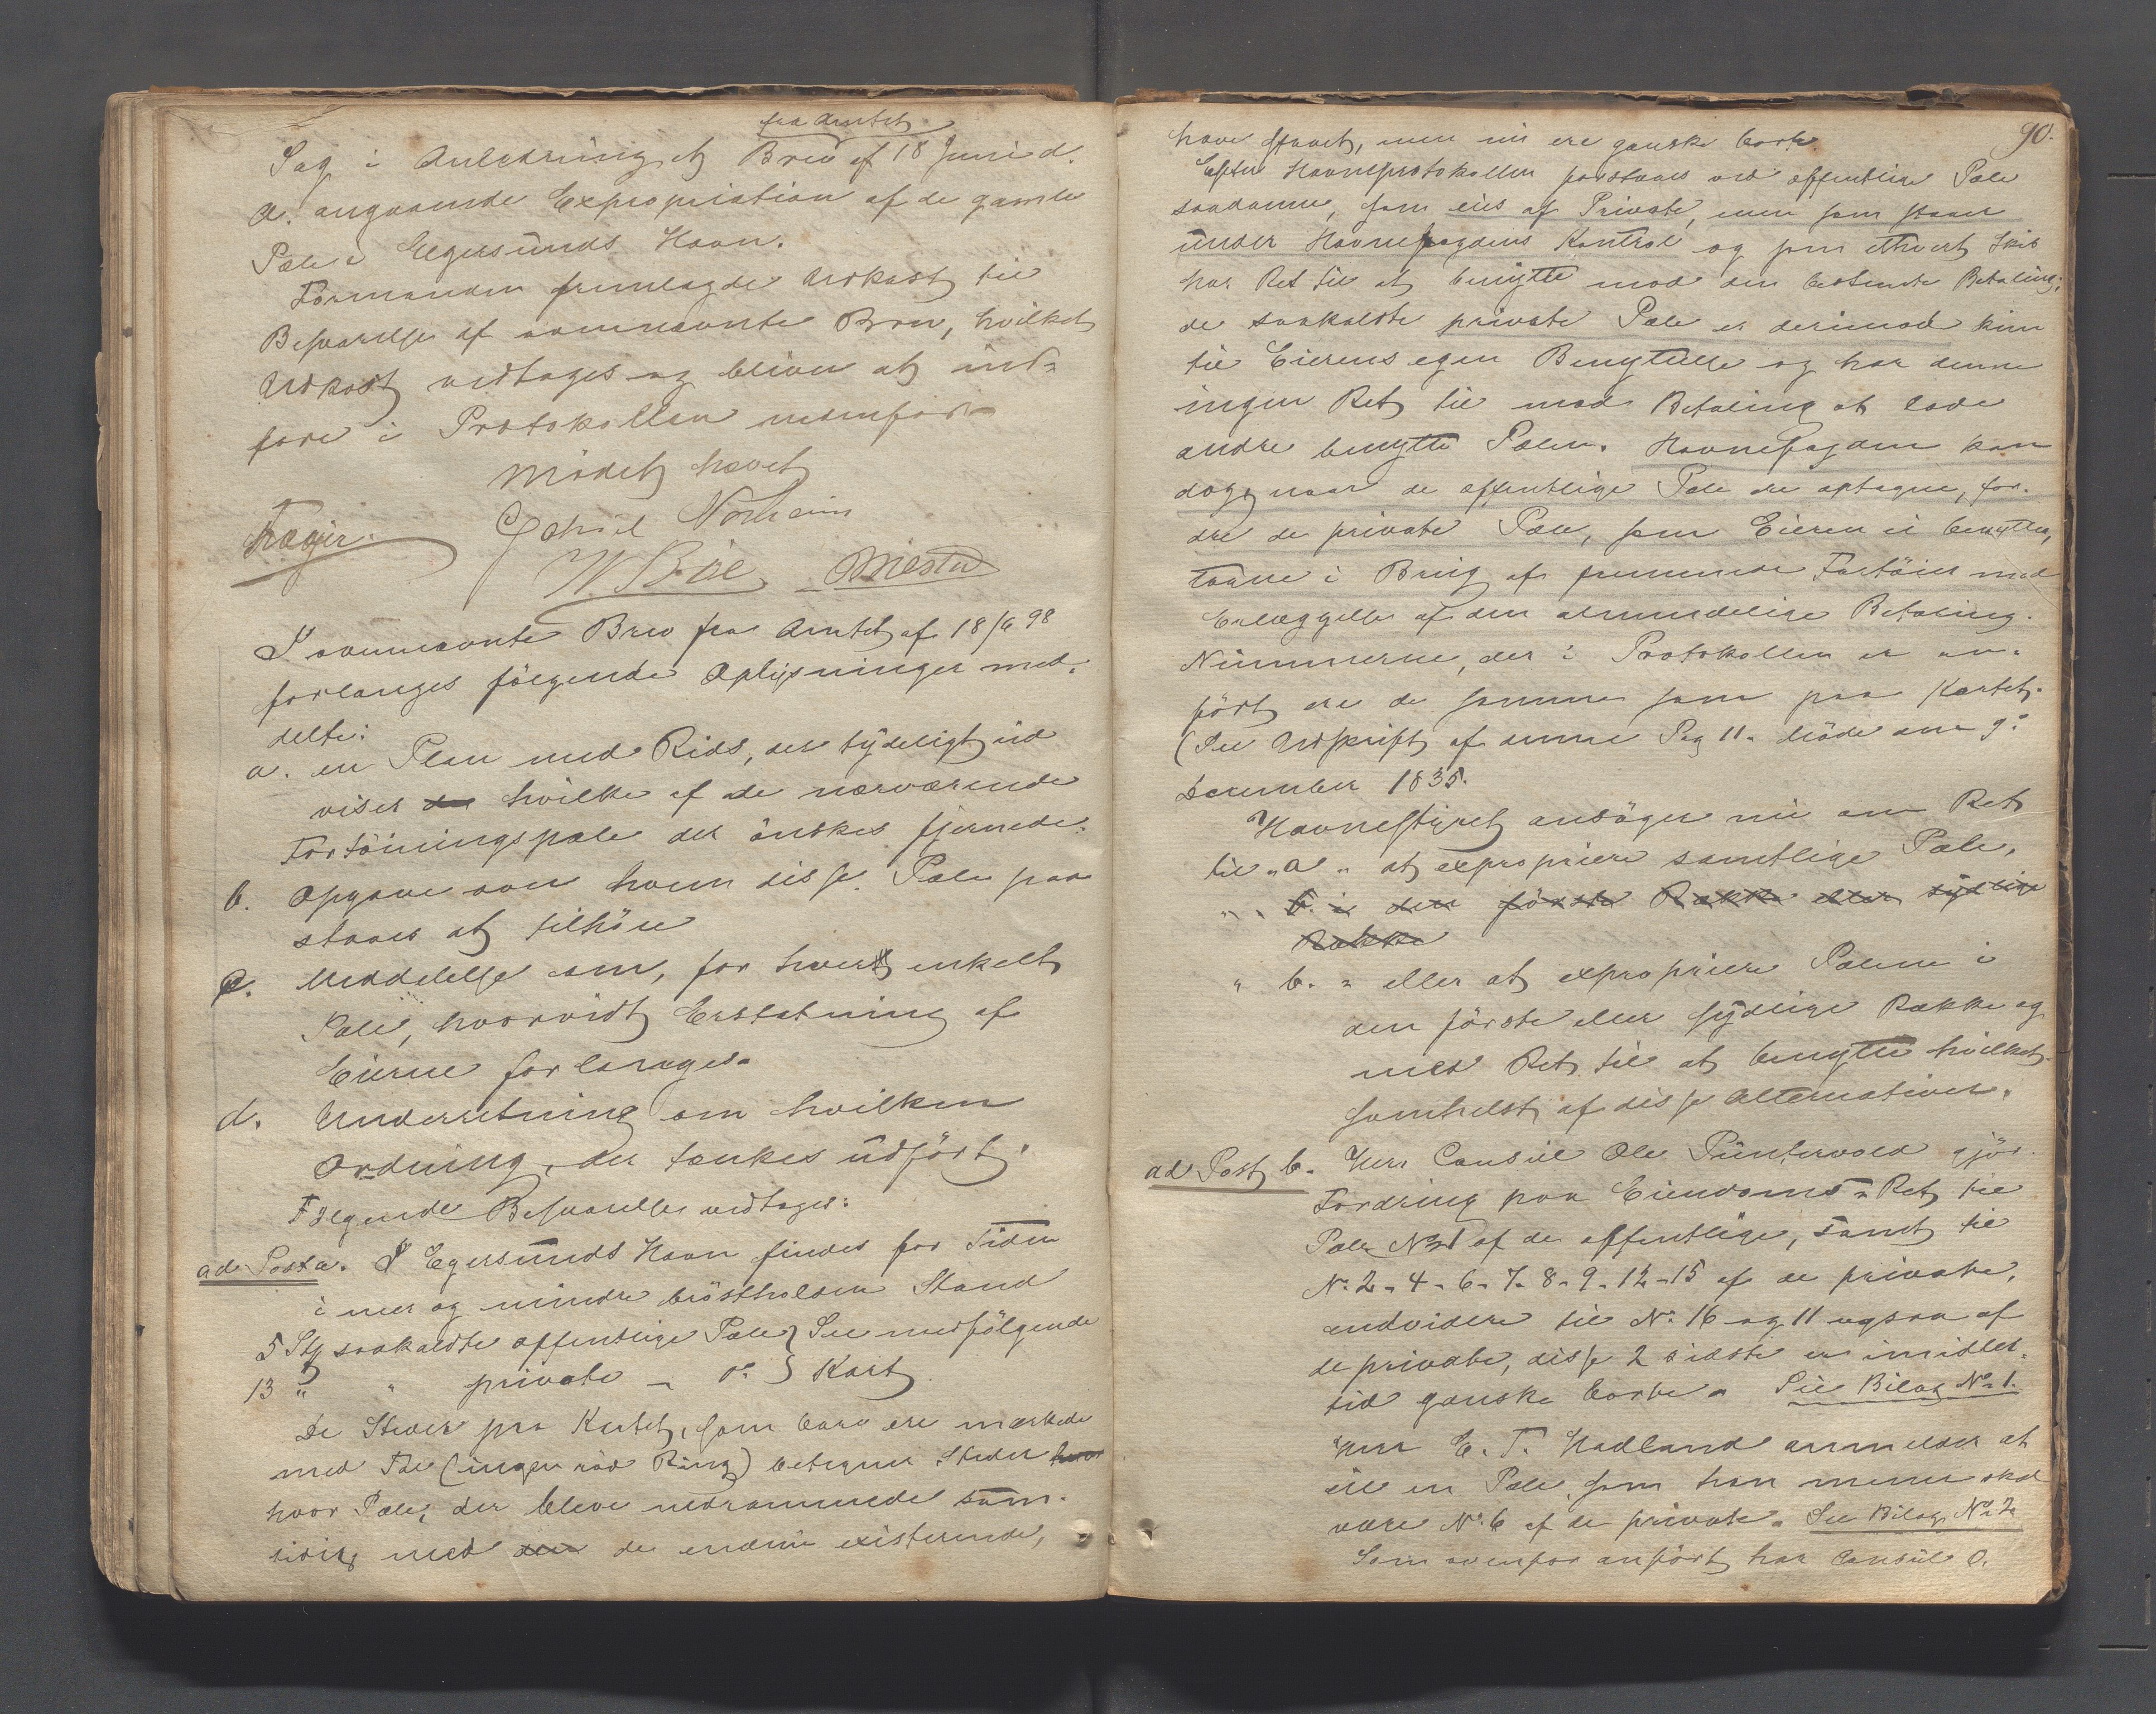 fra Amtet
Sag i Anledning af Brev af 18 Juni d.
A. angaaende Expropriation af de gamle
Pæle i Egersunds Havn.
Formanden fremlagde Udkast til
Besvarelse af ovennævnte Brev, hvilket
Udkast vedtages og bliver at ind-
føre i Protokollen nedenfor
Mödet hævet
Fæger. Gabriel Norheim
W Böe
I ovennævnte Brev fra Amtet af 18/6 98
forlanges fölgende Oplysninger med-
delte:
a. en Plan med Rids, der tydeligt ud
viser der hvilke af de nærværende
Fortöiningspæle der önskes fjernede.
b. Opgave over hvem disse Pæle paa
staaes at tilhöre
c. Meddelelse om, for hvert enkelt
Pæle, hvorvidt Erstatning af
Eierne forlanges.
d. Underretning om hvilken
Ordning, der tænkes udfört.
Følgende Besvarelse vedtages:
ad Post a. I Egersunds Havn findes for Tiden
i mer og mindre bröstholden Stand
5 Stk saakaldte offentlige Pæle } See medfölgende
13 " " private - do } Kart
De Steder paa Kartet, som bare ere mærkede
med Pæl (ingen röd Ring) betegner Steder hvor
hvor Pæle, der bleve nedrammede sam-
tidig med den de endnu existerende,
90.
have staaet, men nu ere ganske borte.
Efter Havneprotokollen forstaaes ved offentlige Pæle
saadanne, som eies af Private, men som staaer
under Havnefogdens Kontrol og som ethvert Skib
har Ret til at benytte mod den bestemte Betaling;
de saakaldte private Pæle er derimod kun
til Eierens egen Benyttelse og har denne
ingen Ret til mod Betaling at lade
andre benytte Pælen. Havnefogden kan
dog, naar de offentlige Pæle ere optagne, for-
dre de private Pæle, som Eieren ei benytter,
tagne i Brug af fremmede Fartöier mod
Erlæggelse af den almindelige Betaling.
Nummerne, der i Protokollen er an-
fört ere de samme som paa Kartet.
(See Udskrift af denne Pag 11. Möde den 9de
December 1835.
Havnestyret ansöger nu om Ret
til "a" at expropriere samtlige Pæle,
" " b. i den förste Række eller sydlige
Række
" b. " eller at expropriere Pælene i
den förste eller sydlige Række og
med Ret til at benytte hvilket
somhelst af disse Alternativer.
ad Post b. Herr Consul Ole Puntervold gjör
Fordring paa Eiendoms-Ret til
Pæle No 1 af de offentlige, samt til
No 2 - 4 - 6 - 7 - 8 - 9 - 12 - 15 af de private,
endvidere til No 16 og 11 ogsaa af
de private, disse 2 sidste er imidler-
tid ganske borte. See Bilag No 1.
Herr E. T. Hadland anmelder at
eie en Pæle, som han mener skal
være No 6 af de private. See Bilag No 2
Som ovenfor anfört har Consul O.